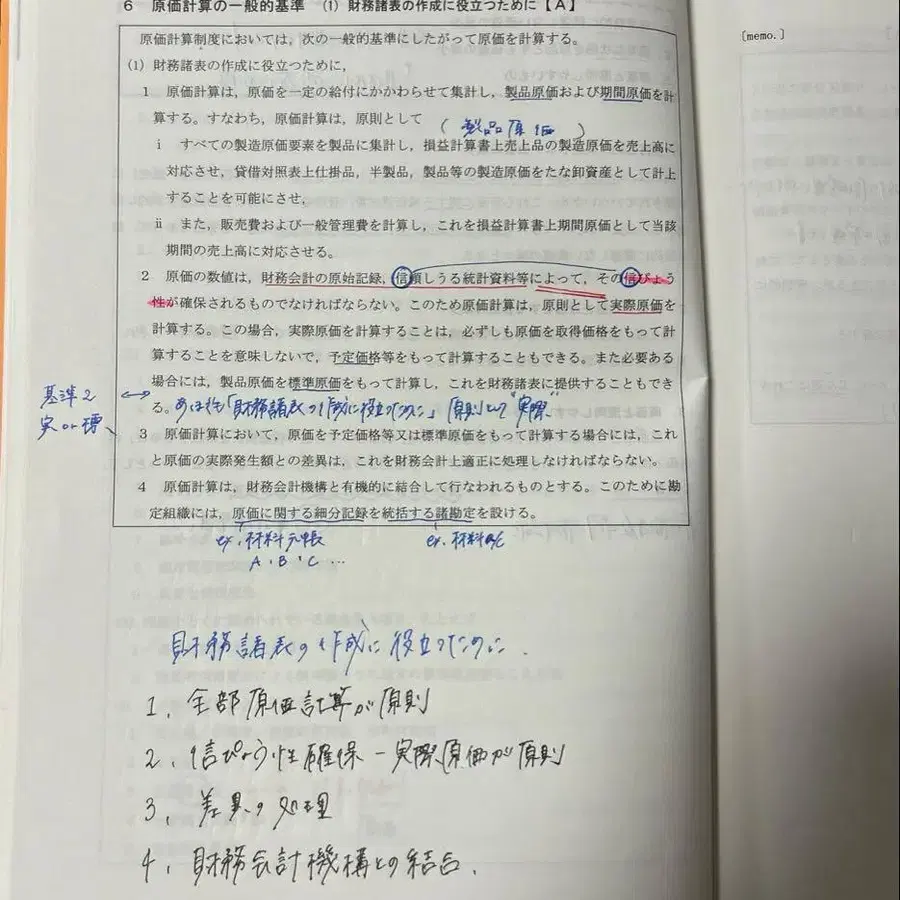 6 原価計算の一般的基準 (1) 財務諸表の作成に役立つために【A】
[memo.]
原価計算制度においては，次の一般的基準にしたがって原価を計算する。
(1) 財務諸表の作成に役立つために，
1 原価計算は，原価を一定の給付にかかわらせて集計し，製品原価および期間原価を計
算する。すなわち，原価計算は，原則として
（製品原価）
ⅰ すべての製造原価要素を製品に集計し，損益計算書上売上品の製造原価を売上高に
対応させ，貸借対照表上仕掛品，半製品，製品等の製造原価をたな卸資産として計上
することを可能にさせ，
ⅱ また，販売費および一般管理費を計算し，これを損益計算書上期間原価として当該
期間の売上高に対応させる。
2 原価の数値は，財務会計の原始記録，信頼しうる統計資料等によって，その信ぴょう
性が確保されるものでなければならない。このため原価計算は，原則として実際原価を
計算する。この場合，実際原価を計算することは，必ずしも原価を取得価格をもって計
算することを意味しないで，予定価格等をもって計算することもできる。また必要ある
場合には，製品原価を標準原価をもって計算し，これを財務諸表に提供することもでき
る。
あくまで「財務諸表の作成に役立つために」原則として"実際"
基準2
実or標
3 原価計算において，原価を予定価格等又は標準原価をもって計算する場合には，これ
と原価の実際発生額との差異は，これを財務会計上適正に処理しなければならない。
4 原価計算は，財務会計機構と有機的に結合して行なわれるものとする。このために勘
定組織には，原価に関する細分記録を統括する諸勘定を設ける。
ex. 材料元帳
A・B・C …
ex. 材料a/c
財務諸表の作成に役立つために．
1. 全部原価計算が原則
2. 信ぴょう性確保－実際原価が原則
3. 差異の処理
4. 財務会計機構との結合．